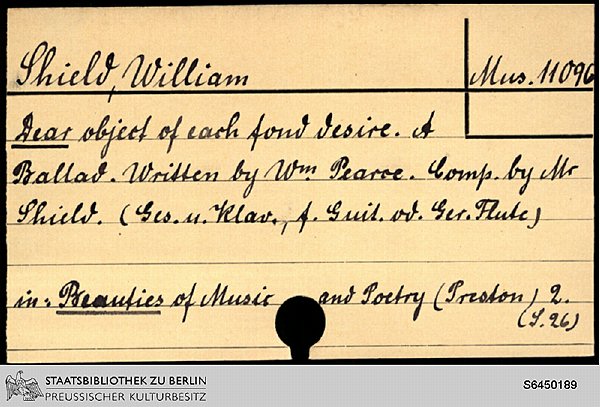 Shield, William
Mus. 11096
Dear object of each fond desire. A
Ballad. Written by Wm Pearce. Comp. by Mr
Shield. (Ges. u. Klav., f. Guit. od. Ger. Flute)
in: Beauties of Music and Poetry (Preston) 2.
(S. 26)
STAATSBIBLIOTHEK ZU BERLIN
PREUSSISCHER KULTURBESITZ
S6450189